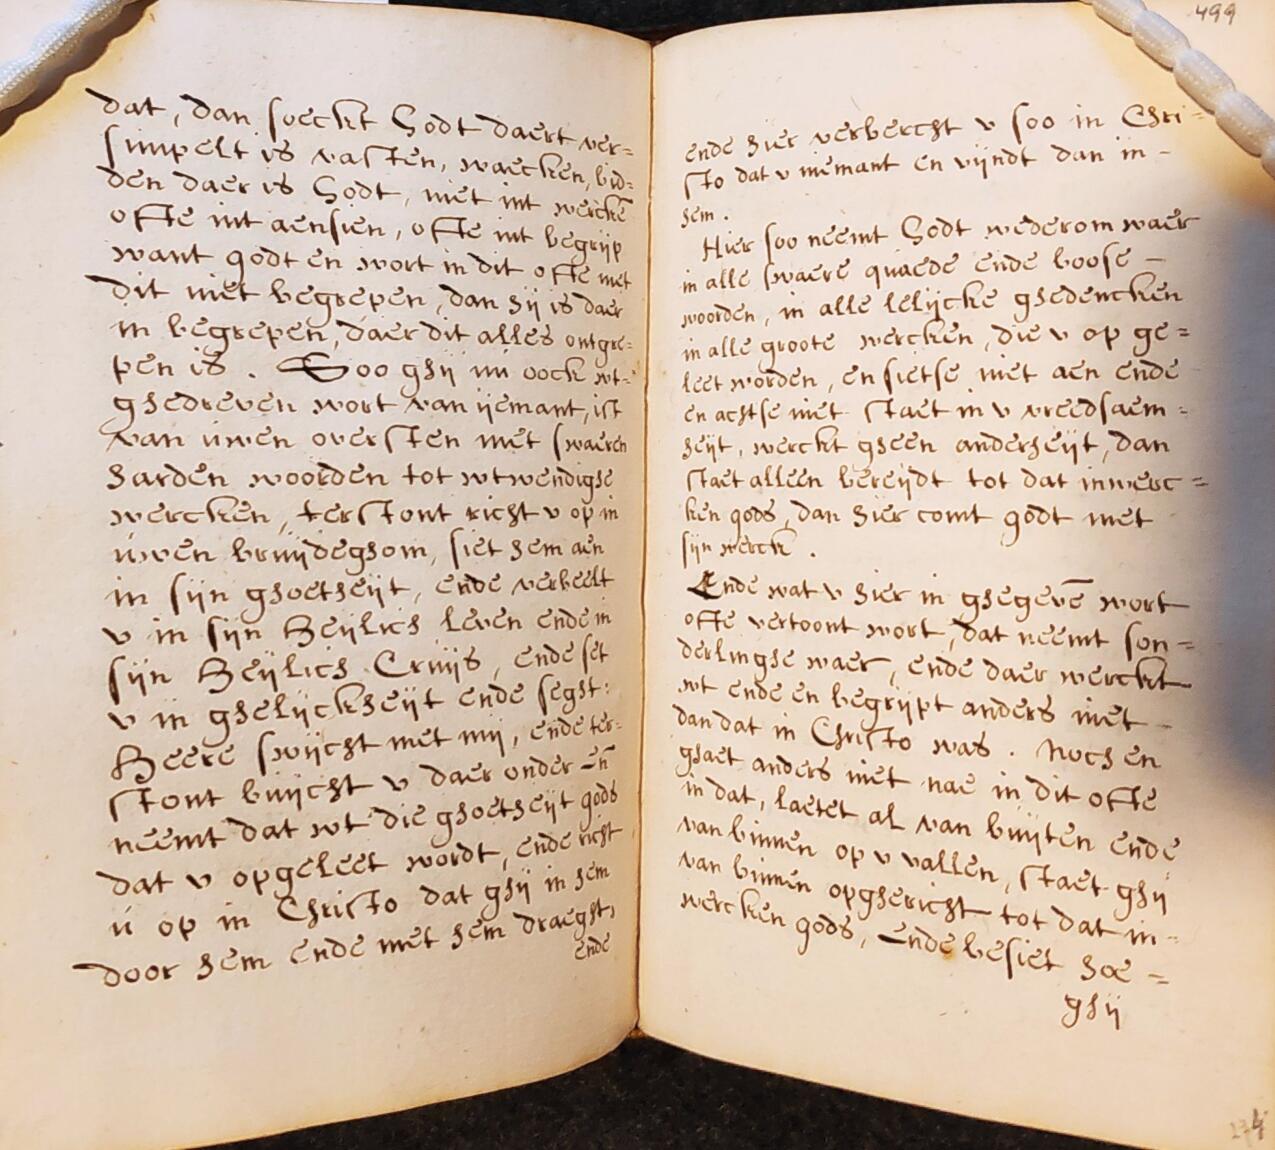 dat, dan soeckt Godt daert ver=
simpelt is vasten, waecken, bid=
den daer is Godt, niet int wercke͞
ofte int aensien, ofte int begrijp
want godt en wort in dit ofte met
dit niet begrepen, dan hij is daer
in begrepen, daer dit alles ontgre=
pen is. Soo ghij nu oock wt=
ghedreven wort van ijemant, ist
van uwen oversten met swaeren
harden woorden tot wtwendighe
wercken, terstont richt v op in
uwen bruijdeghom, siet hem aen
in sijn ghoetheijt, ende verbeelt
v in sijn Heijlich leven ende in
sijn Heijlich Cruijs, ende set
v in ghelijckheijt ende seght:
Heere swijcht met mij, ende ter=
stont buijcht v daer onder en͞
neemt dat wt die ghoetheijt gods
dat v opgeleet wordt, ende richt
u op in Christo dat ghij in hem
door hem ende met hem draeght,
ende
499
ende hier verbercht v soo in Chri=
sto dat v niemant en vijndt dan in-
hem.
Hier soo neemt Godt wederom waer
in alle swaere quaede ende boose -
woorden, in alle lelijcke ghedencken
in alle groote wercken, die v op ge=
leet worden, en sietse niet aen ende
en achtse niet staet in v vreedsaem=
heijt, werckt gheen anderheijt, dan
staet alleen bereijdt tot dat inwerc=
ken gods, dan hier comt godt met
sijn werck.
Ende wat v hier in ghegeve͞ wort
ofte vertoont wort, dat neemt son=
derlinghe waer, ende daer werckt
wt ende en begrijpt anders niet -
dan dat in Christo was. Noch en
ghaet anders niet nae in dit ofte
in dat, laetet al van buijten ende
van binnen op v vallen, staet ghij
van binnen opghericht tot dat in=
wercken gods, ende besiet hoe =
ghij